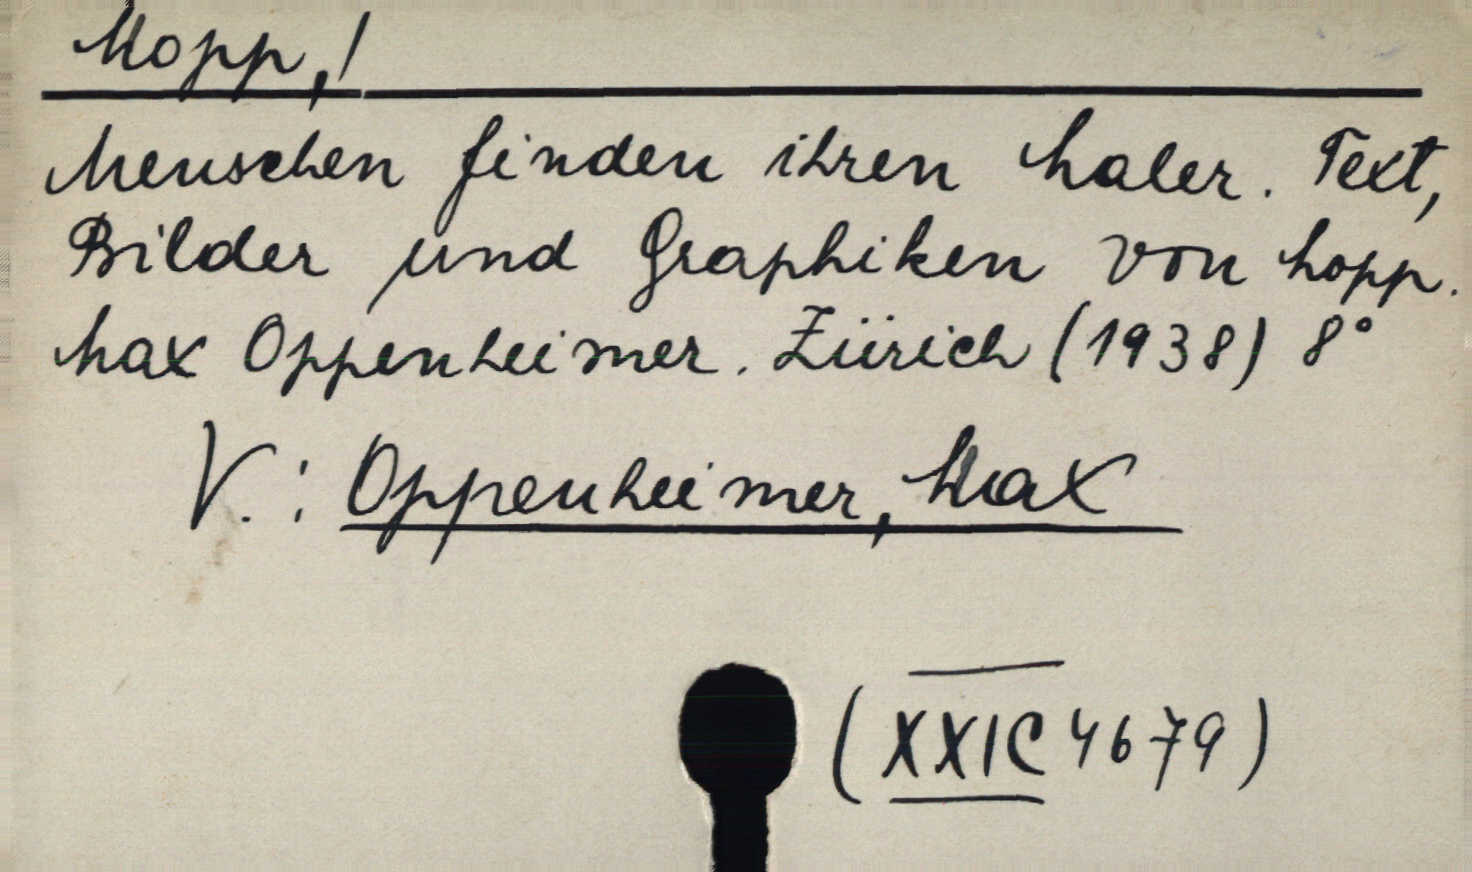 Mopp,!
Menschen finden ihren Maler. Text,
Bilder und Graphiken von Mopp.
Max Oppenheimer. Zürich (1938) 8°
V.: Oppenheimer, Max
(XXIC 4679)